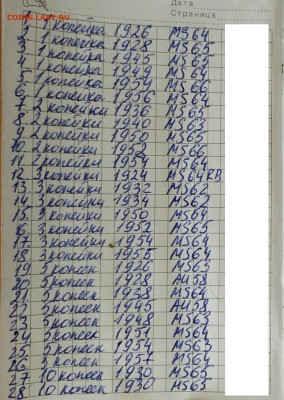 COINS.LASE.RU
Дата
Страница
1 копейка 1926 MS64
3 1 копейка 1928 MS65
4 1 копейка 1945 MS65
5 1 копейка 1949 MS64
1 копейка 1954 MS66
6 1 копейка 1956 MS64
7 2 копейки 1926 MS65
8 2 копейки 1940 MS63
9 2 копейки 1950 MS65
10 2 копейки 1952 MS66
11 2 копейки 1954 MS64
12 3 копейки 1924 MS64RB
13 3 копейки 1932 MS62
14 3 копейки 1934 MS62
15 3 копейки 1950 MS64
16 3 копейки 1952 MS65
17 3 копейки 1954 MS64
18 3 копейки 1955 MS64
19 5 копеек 1926 MS63
20 5 копеек 1928 AU58
21 5 копеек MS62
22 5 копеек 1945 AU58
23 5 копеек 1948 MS63
24 5 копеек 1951 MS64
25 5 копеек 1954 MS63
26 5 копеек 1957 MS64
27 10 копеек 1930 MS65
28 10 копеек 1930 MS65